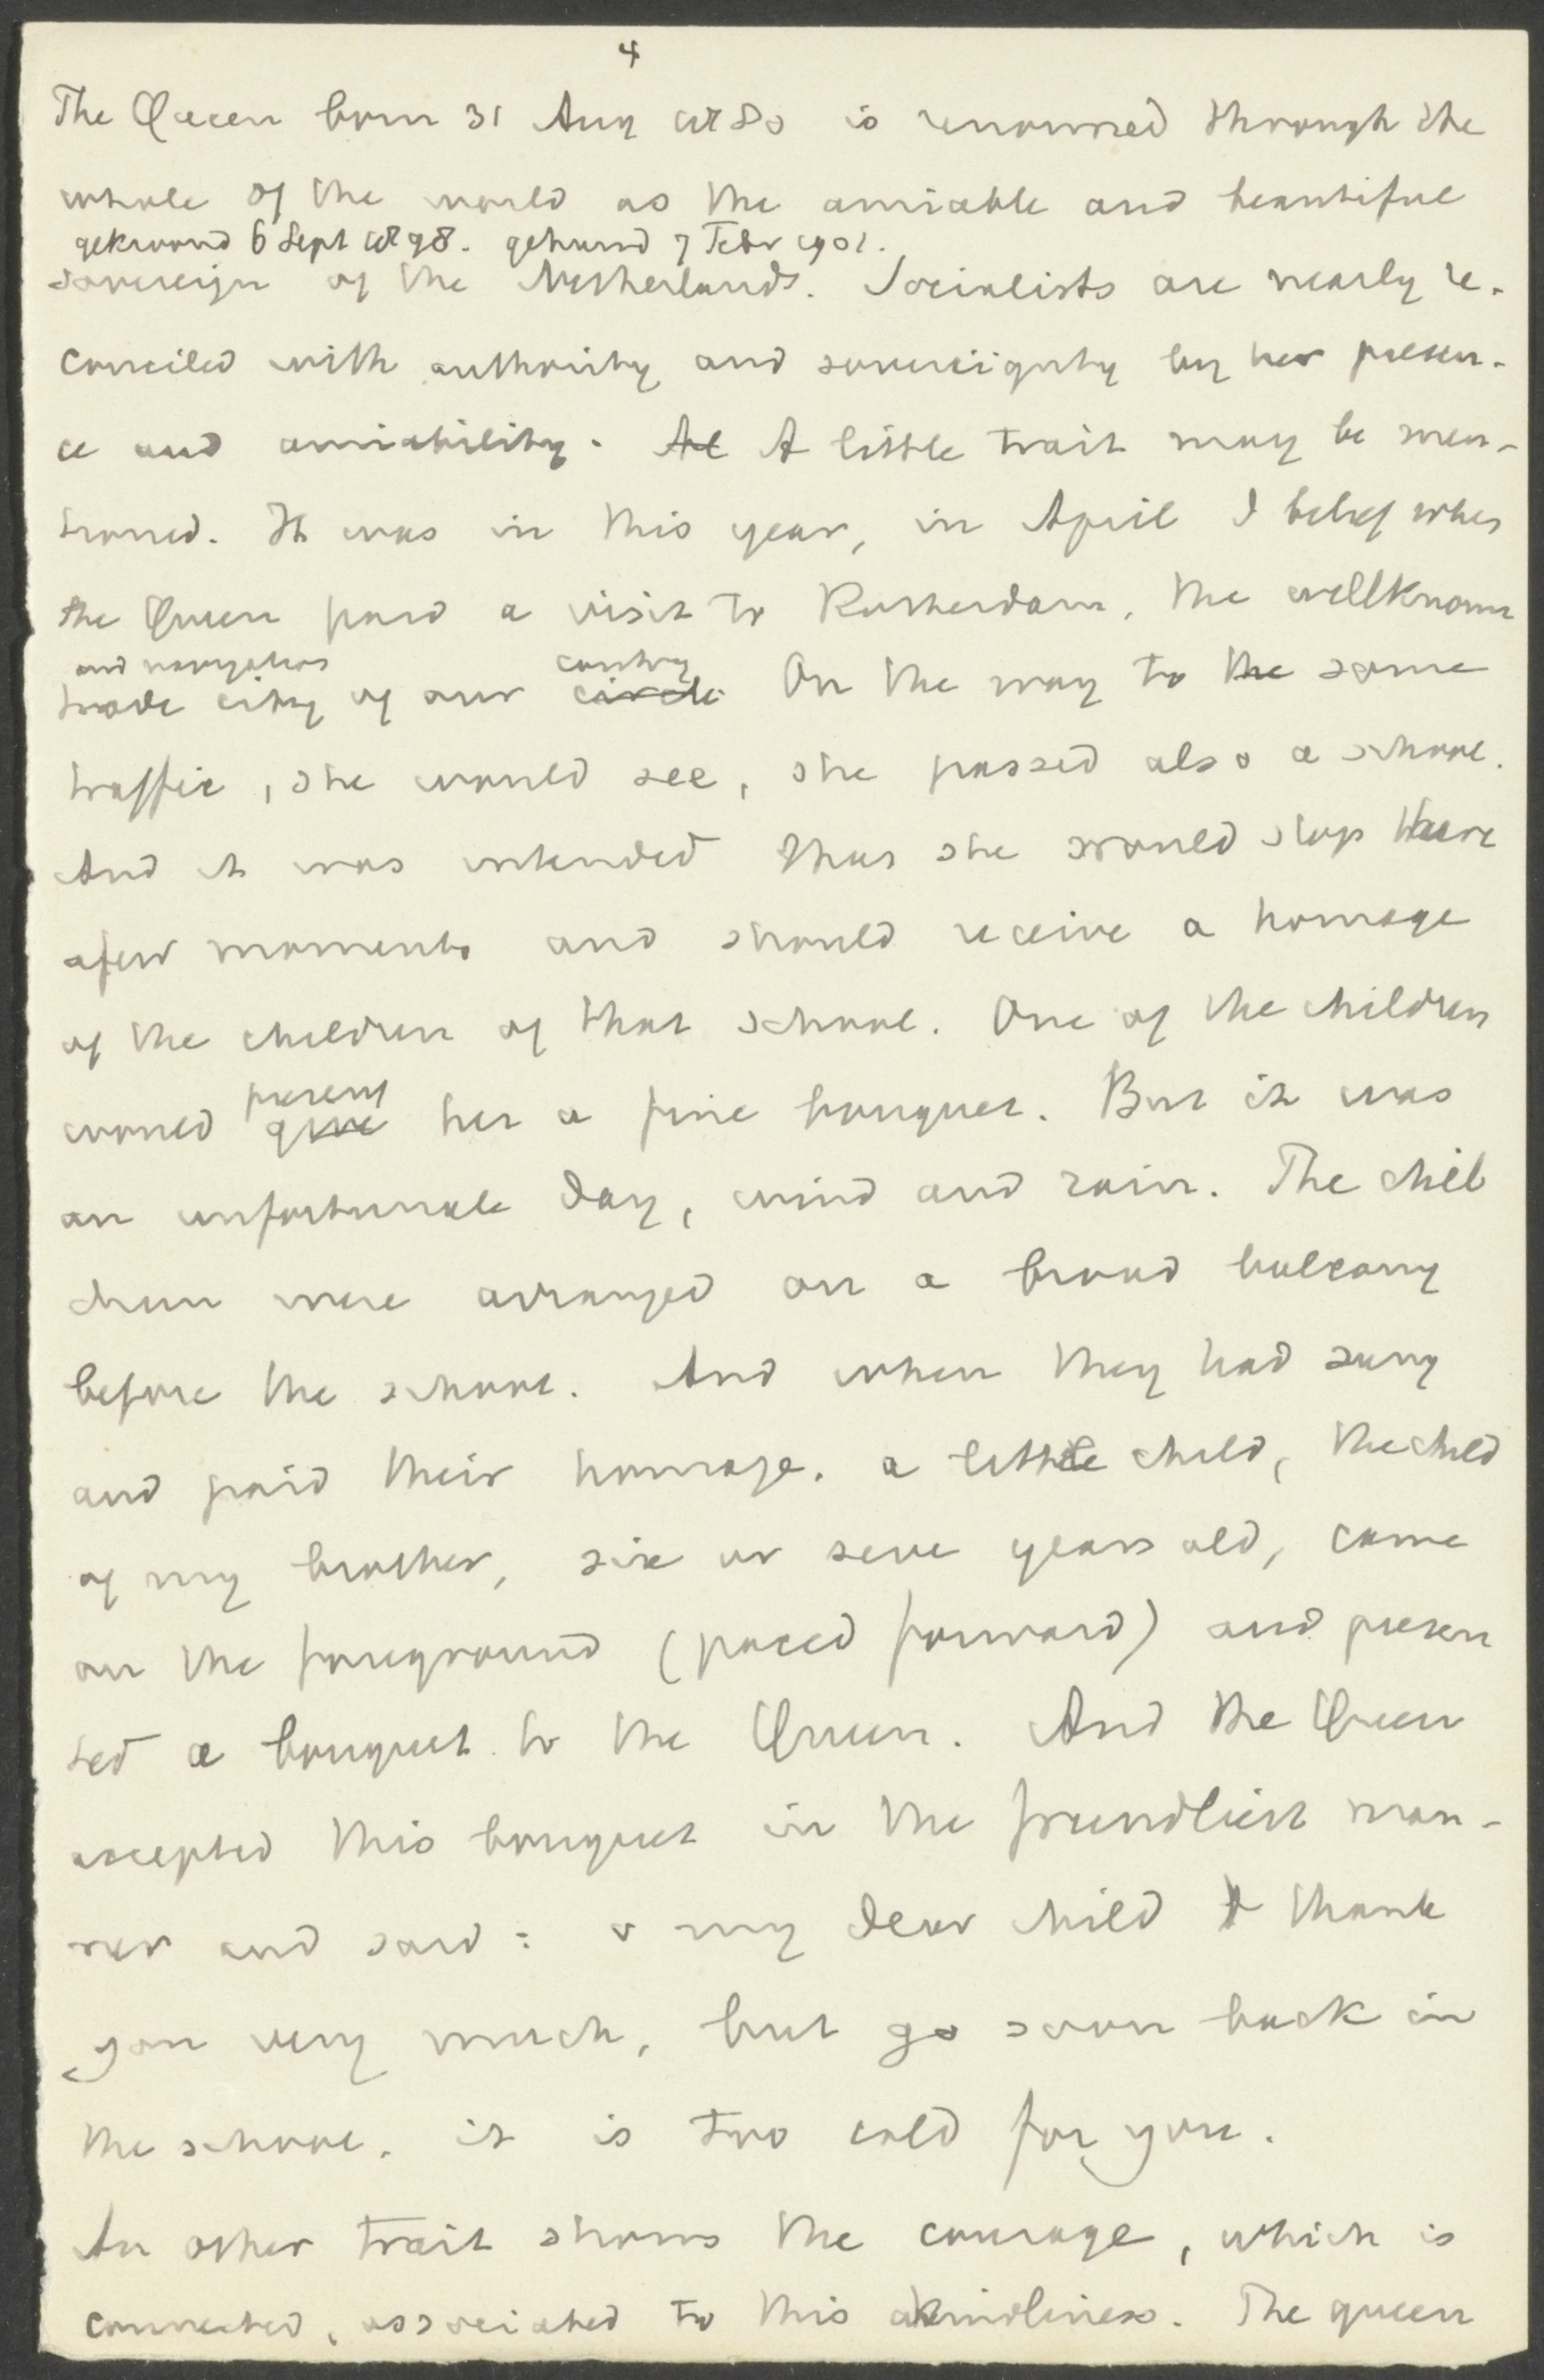 4
The Queen born 31 Aug 1880 is renowned through the
whole of the world as the amiable and beautiful
gekroond 6 Sept 1898. gehuwd 7 Febr 1901.
sovereign of the Netherlands. Socialists are nearly re-
conciled with authority and sovereignty by her presen-
ce and amiability. Al A little trait may be men-
tioned. It was in this year, in April I belief when
the Queen paid a visit to Rotherdam, the wellknown
and navigation country
trade city of our circle. On the way to the same
traffic, she would see, she passed also a school.
And it was intended that she would stop there
a few moments and should receive a homage
of the children of that school. One of the children
present
would give her a fine bouquet. But it was
an unfortunate day, wind and rain. The chil
dren were arranged on a broad balcony
before the school. And when they had sung
and paid their homage, a little child, the child
of my brother, six or seve years old, came
on the foreground (paced forward) and presen
ted a bouquet to the Queen. And the Queen
accepted this bouquet in the friendliest man-
ner and said: o my dear child I thank
you very much, but go soon back in
the school, it is two cold for you.
An other trait shows the courage, which is
connected, associated to this kindliness. The queen